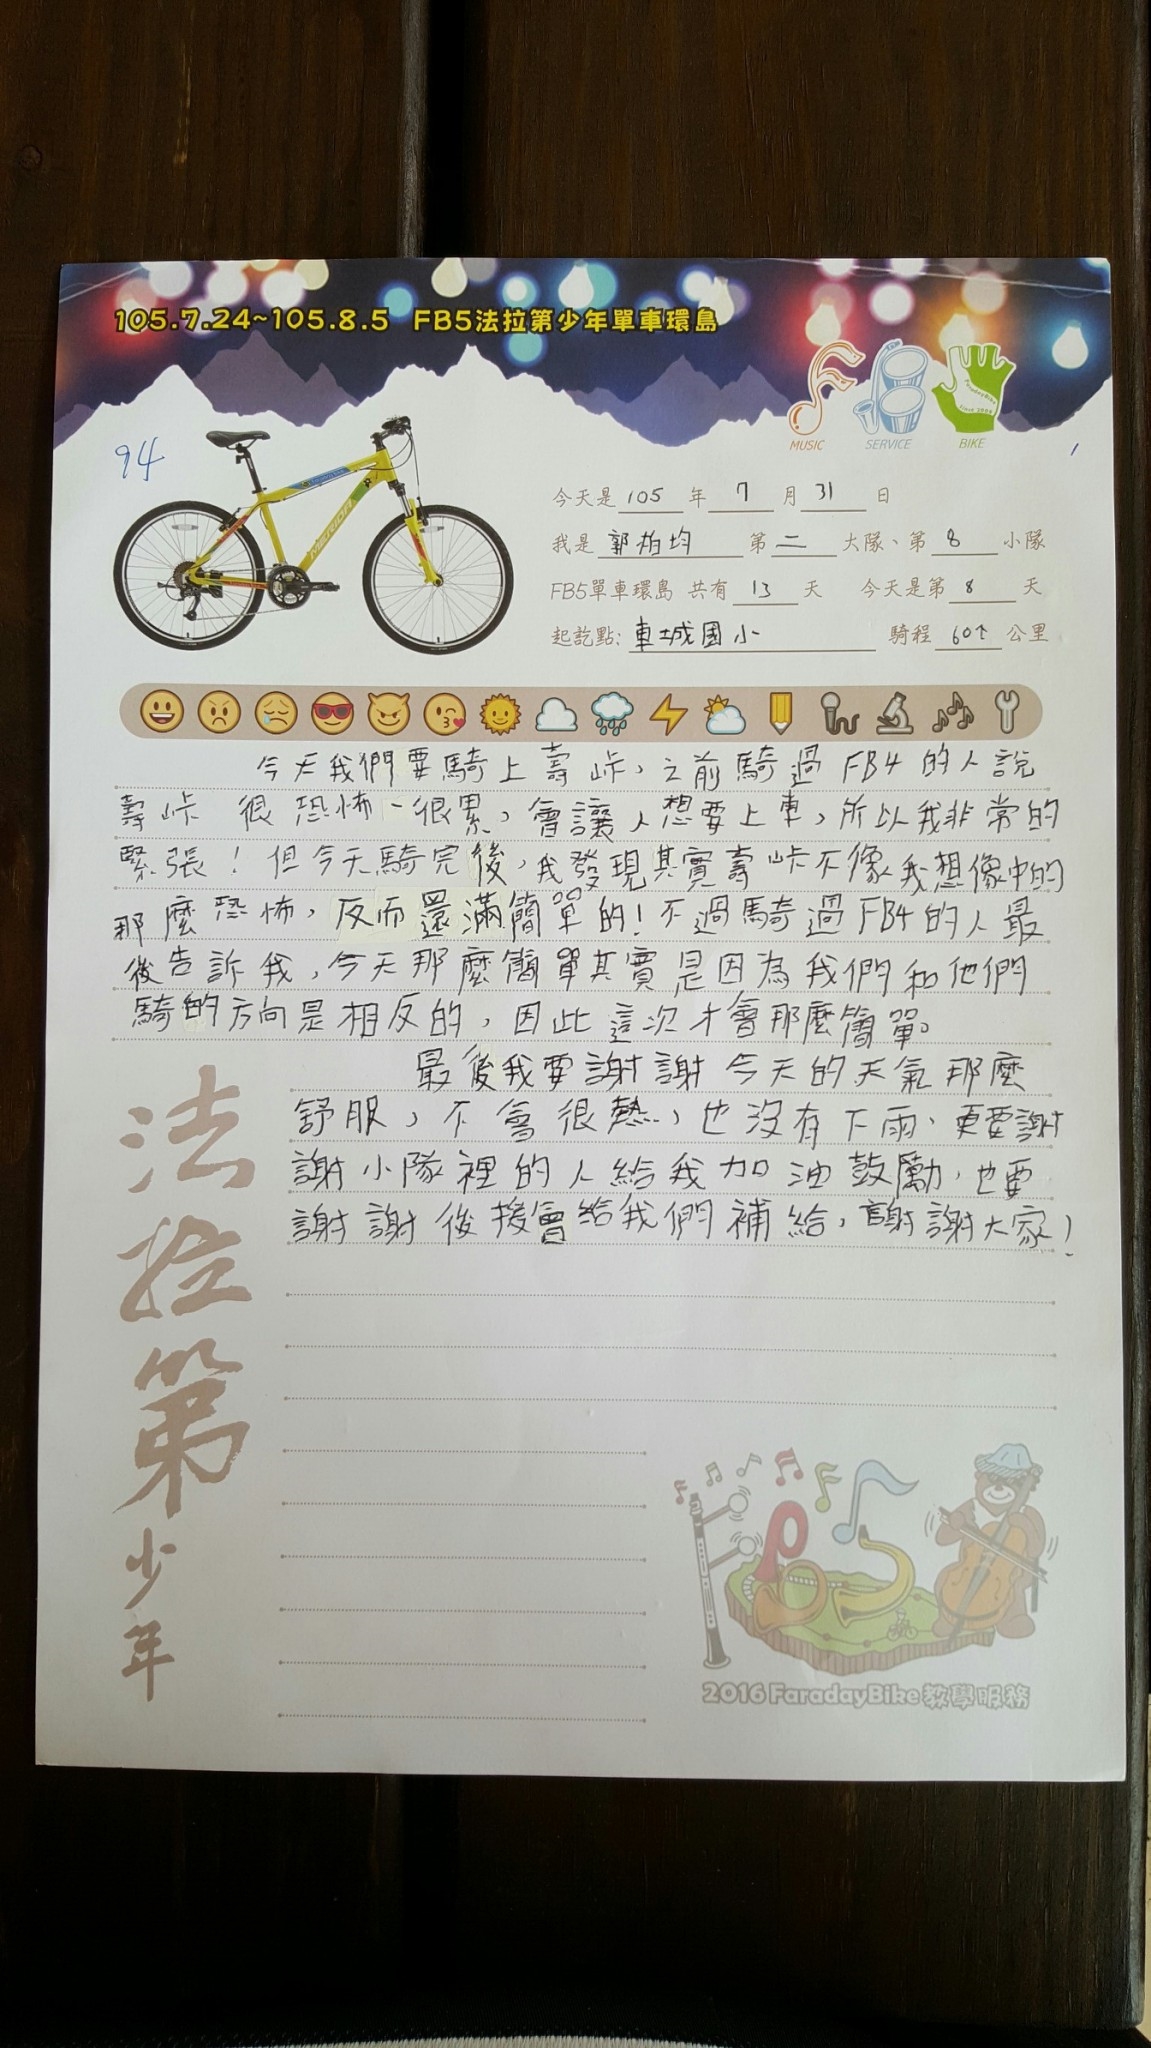 105.7.24~105.8.5 FB5法拉第少年單車環島
MUSIC SERVICE BIKE
94
MERIDA
今天是 105 年 7 月 31 日
我是 郭柏均 第 二 大隊、第 8 小隊
FB5單車環島 共有 13 天 今天是第 8 天
起訖點: 車城國小 騎程 60↑ 公里
今天我們要騎上壽峠,之前騎過FB4的人說
壽峠 很恐怖、很累,會讓人想要上車,所以我非常的
緊張!但今天騎完後,我發現其實壽峠不像我想像中的
那麼恐怖,反而還滿簡單的!不過騎過FB4的人最
後告訴我,今天那麼簡單其實是因為我們和他們
騎的方向是相反的,因此這次才會那麼簡單。
最後我要謝謝今天的天氣那麼
舒服,不會很熱,也沒有下雨,更要謝
謝小隊裡的人給我加油鼓勵,也要
謝謝後援會給我們補給,謝謝大家!
法拉第少年
2016 FaradayBike 教學服務